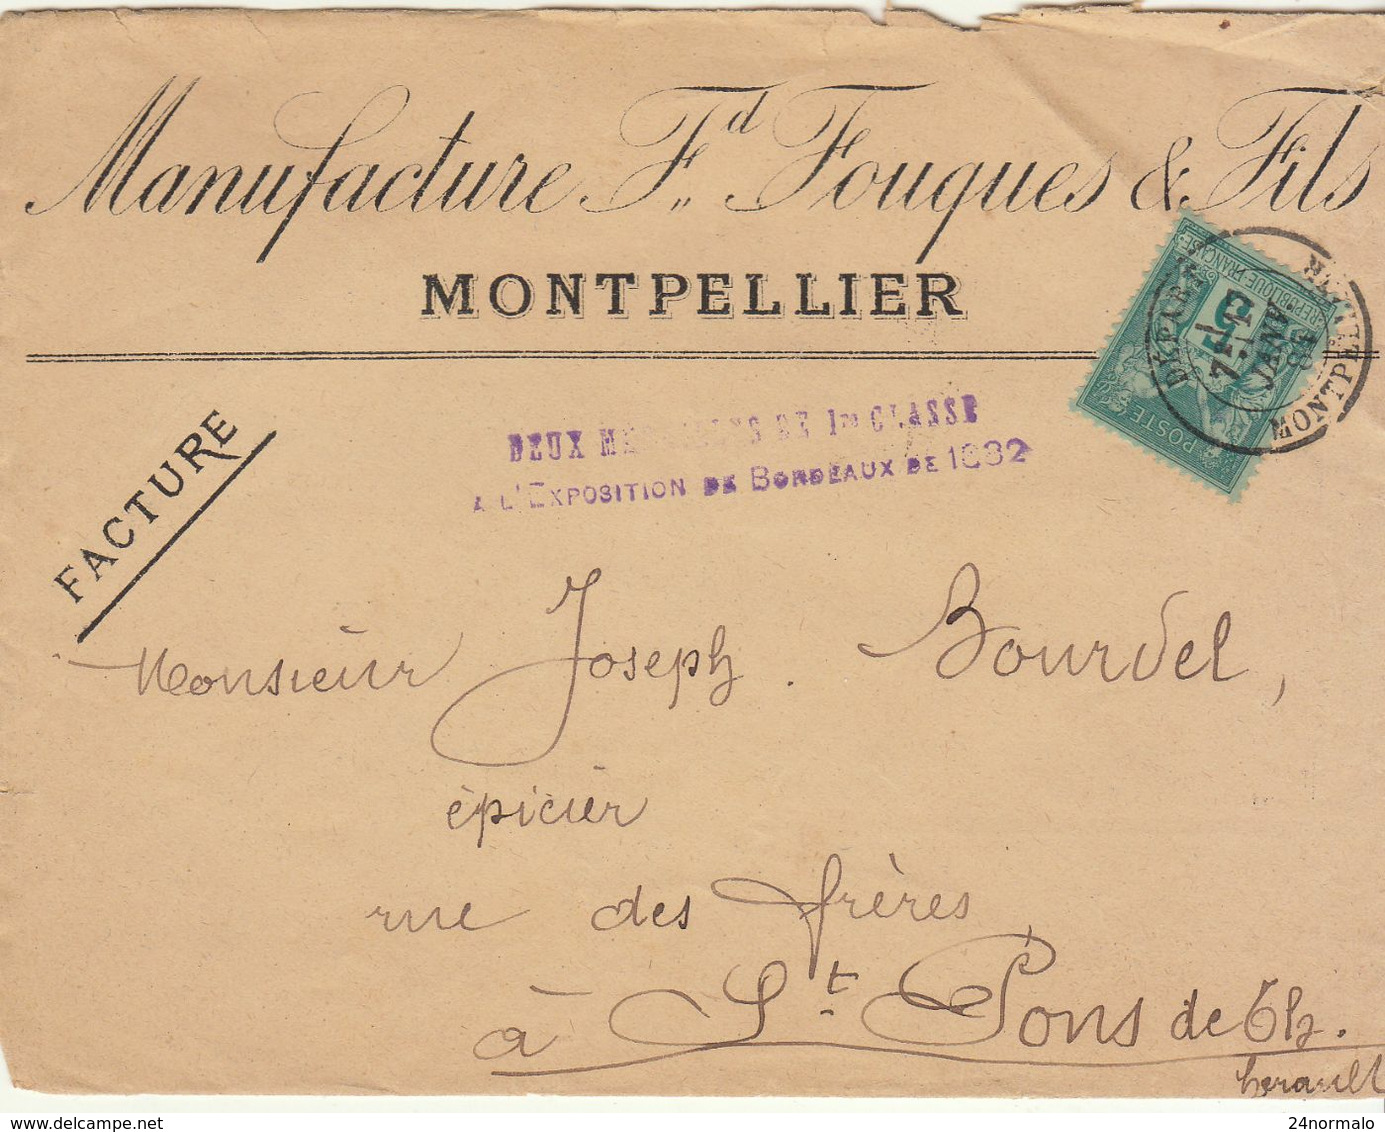 Manufacture Fd Fouques & Fils
MONTPELLIER
FACTURE
DEUX MEDAILLES DE 1re CLASSE
A L'EXPOSITION DE BORDEAUX DE 1882
REPUBLIQUE FRANÇAISE
5
POSTE
DEPART
MONTPELLIER
7
JANV.
Monsieur Joseph. Bourdel,
épicier
rue des frères
à St. Pons de Th.
herault
www.delcampe.net
24normalo